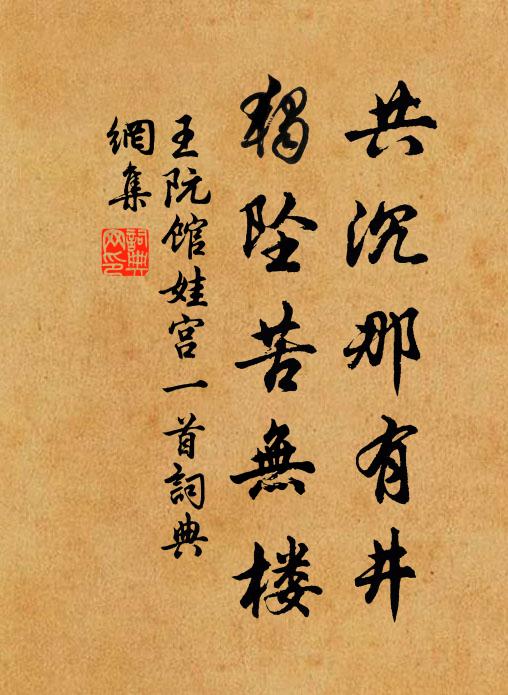 共沉那有井
獨坠苦無楼
王阮馆娃宫一首詞典
網集
詞典
网印